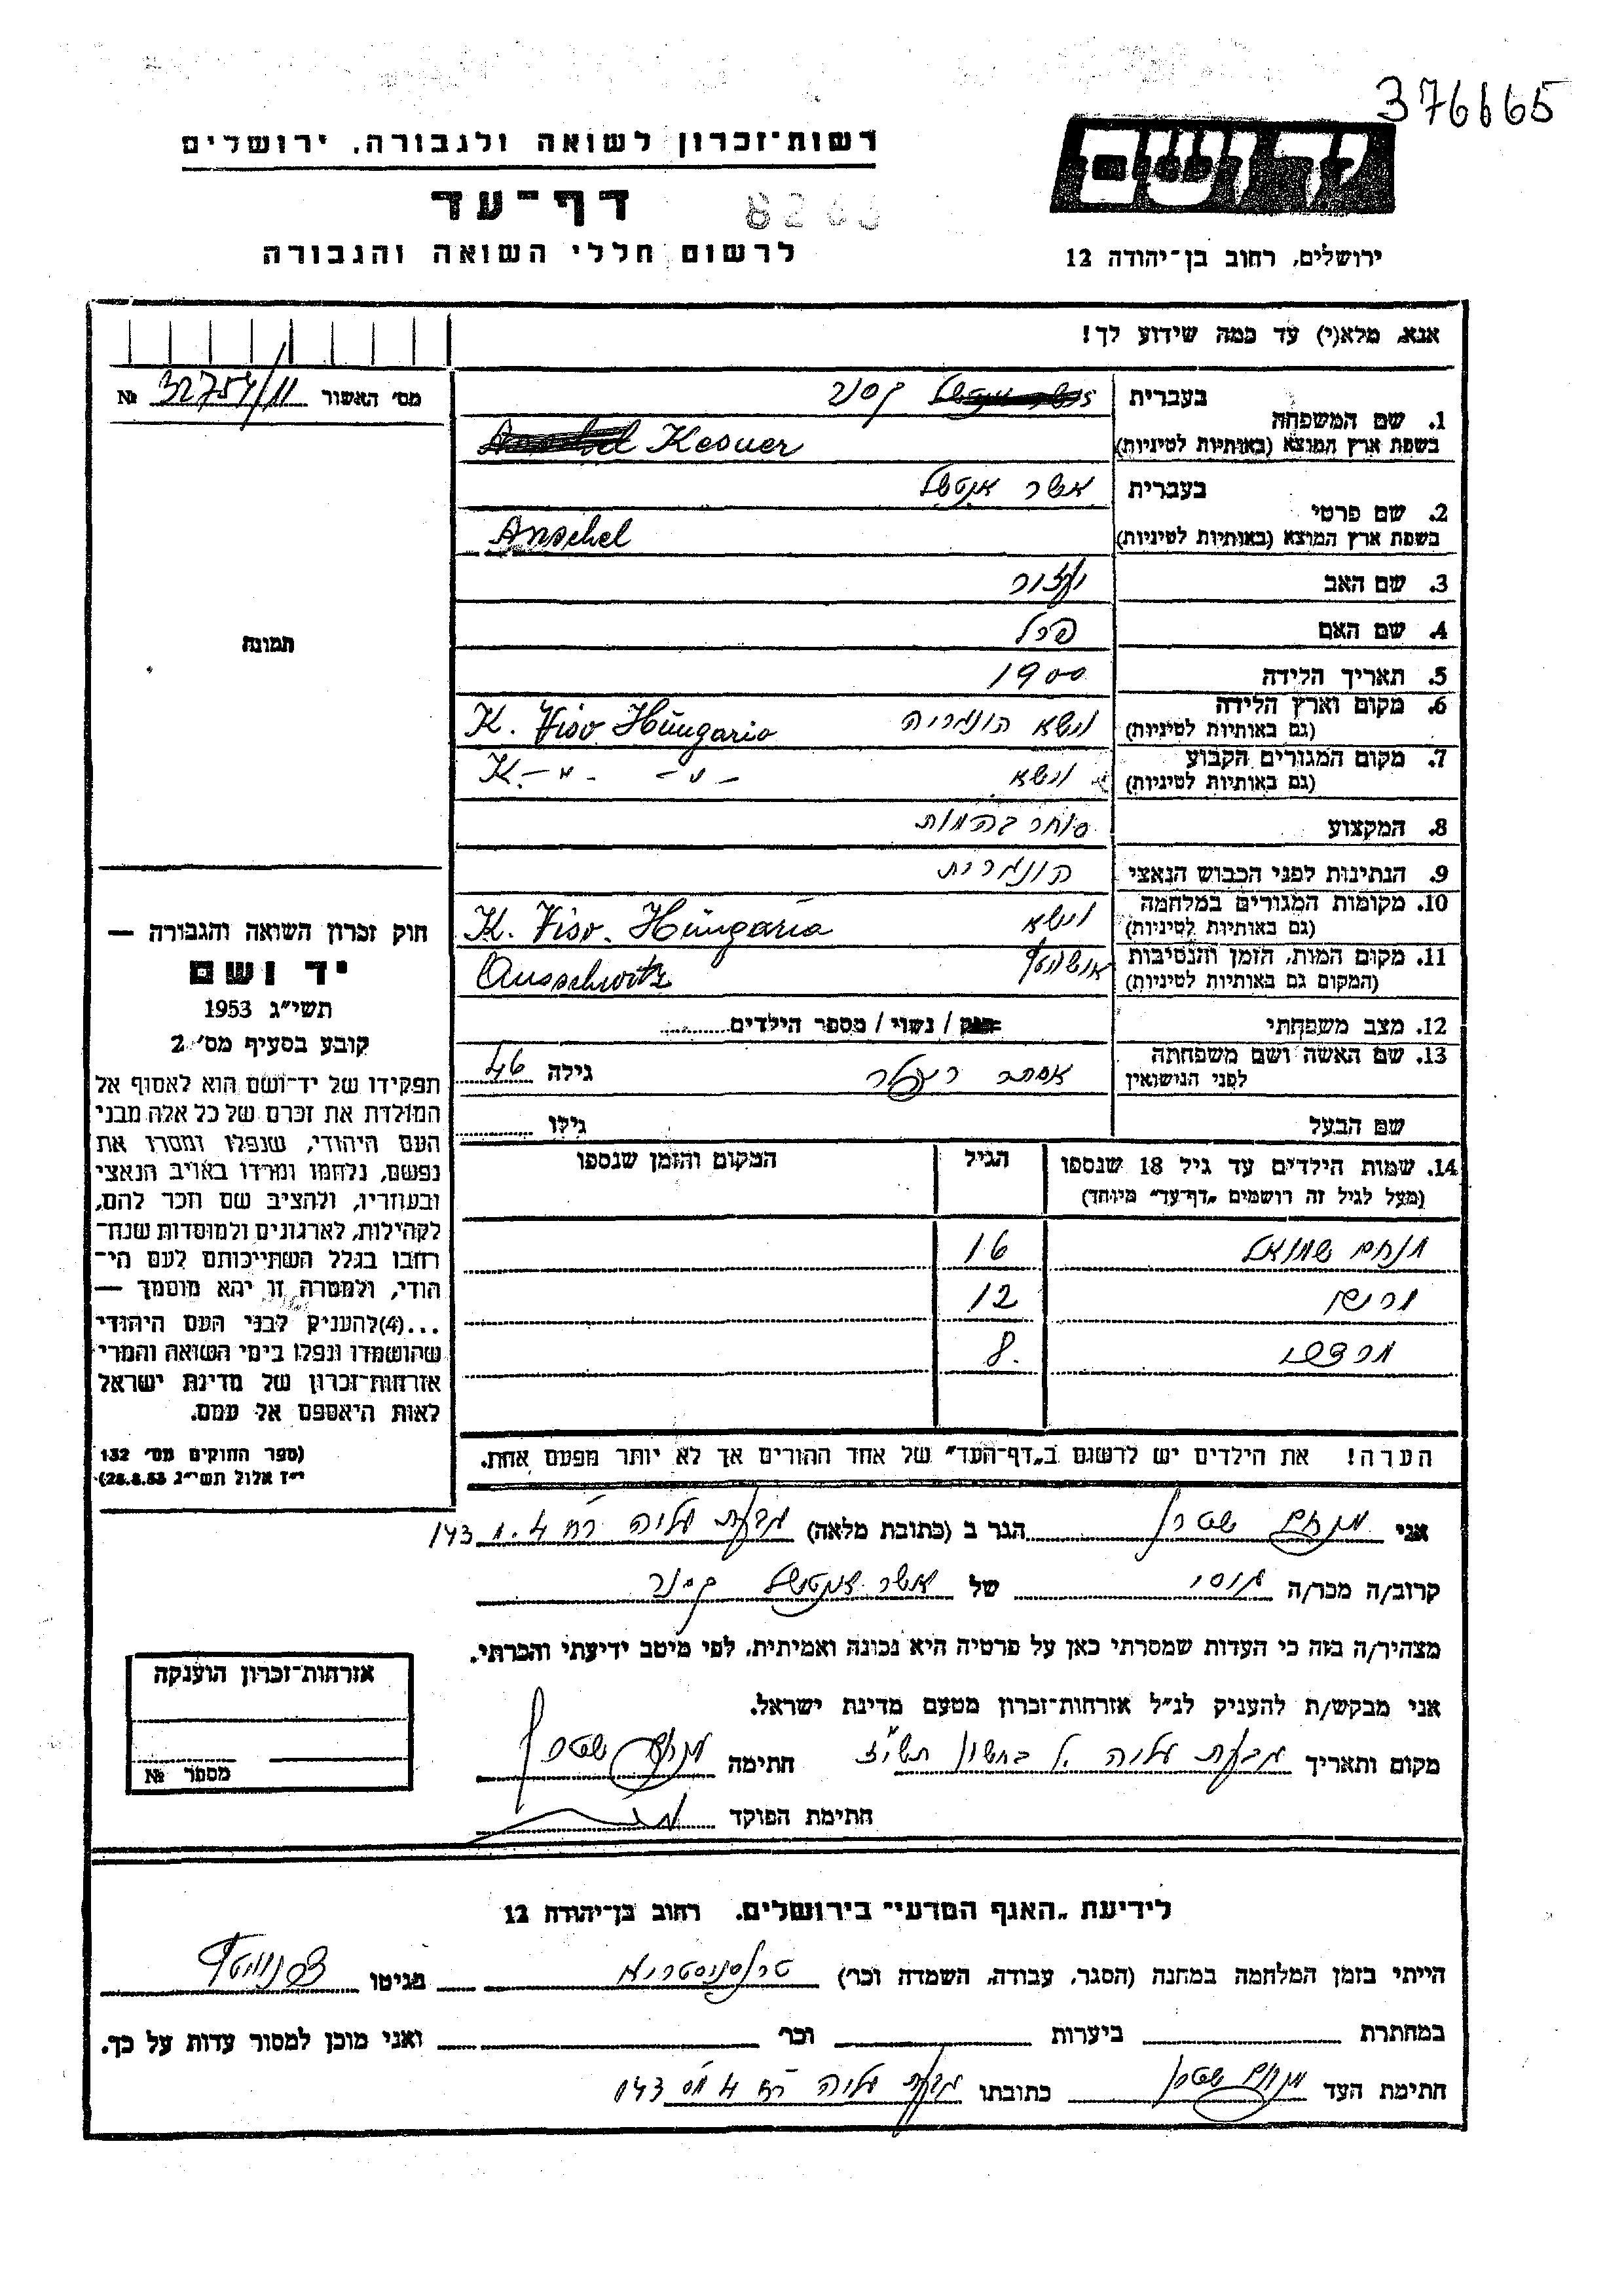 376665
רשות־זכרון לשואה ולגבורה, ירושלים
יד ושם
דף־עד
לרשום חללי השואה והגבורה
ירושלים, רחוב בן־יהודה 12
אנא, מלא(י) עד כמה שידוע לך!
מס׳ האשור 32754/11 №
1. שם המשפחה
בעברית קסנר
בשפת ארץ המוצא (באותיות לטיניות) Kesner
2. שם פרטי
בעברית אשר אנטשל
בשפת ארץ המוצא (באותיות לטיניות) Anschel
3. שם האב
4. שם האם פרל
5. תאריך הלידה 1900
6. מקום וארץ הלידה
(גם באותיות לטיניות) ווישא הונגריה K. Viso Hungaria
7. מקום המגורים הקבוע
(גם באותיות לטיניות) ווישא K -״- -״-
8. המקצוע סוחר בהמות
9. הנתינות לפני הכבוש הנאצי הונגרית
10. מקומות המגורים במלחמה
(גם באותיות לטיניות) ווישא K. Viso. Hungaria
11. מקום המות, הזמן והנסיבות
(המקום גם באותיות לטיניות) אושוויץ Ausschwitz
12. מצב משפחתי רווק / נשוי / מספר הילדים
13. שם האשה ושם משפחתה
לפני הנישואין אסתר גילה 46
שם הבעל גילו
14. שמות הילדים עד גיל 18 שנספו
(מעל לגיל זה רושמים „דף־עד״ מיוחד)
הגיל
המקום והזמן שנספו
מנחם שמואל 16
12
8
הערה! את הילדים יש לרשום ב„דף־העד״ של אחד ההורים אך לא יותר מפעם אחת.
תמונה
חוק זכרון השואה והגבורה —
יד ושם
תשי״ג 1953
קובע בסעיף מס׳ 2
תפקידו של יד־ושם הוא לאסוף אל
המולדת את זכרם של כל אלה מבני
העם היהודי, שנפלו ומסרו את
נפשם, נלחמו ומרדו באויב הנאצי
ובעוזריו, ולהציב שם וזכר להם,
לקהילות, לארגונים ולמוסדות שנח־
רבו בגלל השתייכותם לעם הי־
הודי, ולמטרה זו יהא מוסמך —
...(4)להעניק לבני העם היהודי
שהושמדו ונפלו בימי השואה והמרי
אזרחות־זכרון של מדינת ישראל
לאות היאספם אל עמם.
(ספר החוקים מס׳ 132
י״ז אלול תשי״ג 28.8.53)
אני מנחם שטרן הגר ב (כתובת מלאה) גבעת עליה רח׳ 4 143
קרוב/ה מכר/ה גיסי של אשר אנטשל קסנר
מצהיר/ה בזה כי העדות שמסרתי כאן על פרטיה היא נכונה ואמיתית, לפי מיטב ידיעתי והכרתי.
אני מבקש/ת להעניק לנ״ל אזרחות־זכרון מטעם מדינת ישראל.
מקום ותאריך גבעת עליה ל׳ בחשון תשי״ז חתימה מנחם שטרן
חתימת הפוקד
אזרחות־זכרון הוענקה
מספר №
לידיעת „האגף המדעי״ בירושלים, רחוב בן־יהודה 12
הייתי בזמן המלחמה במחנה (הסגר, עבודה, השמדה וכר׳) טרנסניסטריא בגיטו
במחתרת ביערות וכר׳ ואני מוכן למסור עדות על כך.
חתימת העד מנחם שטרן כתובתו גבעת עליה רח׳ 4 מס׳ 143